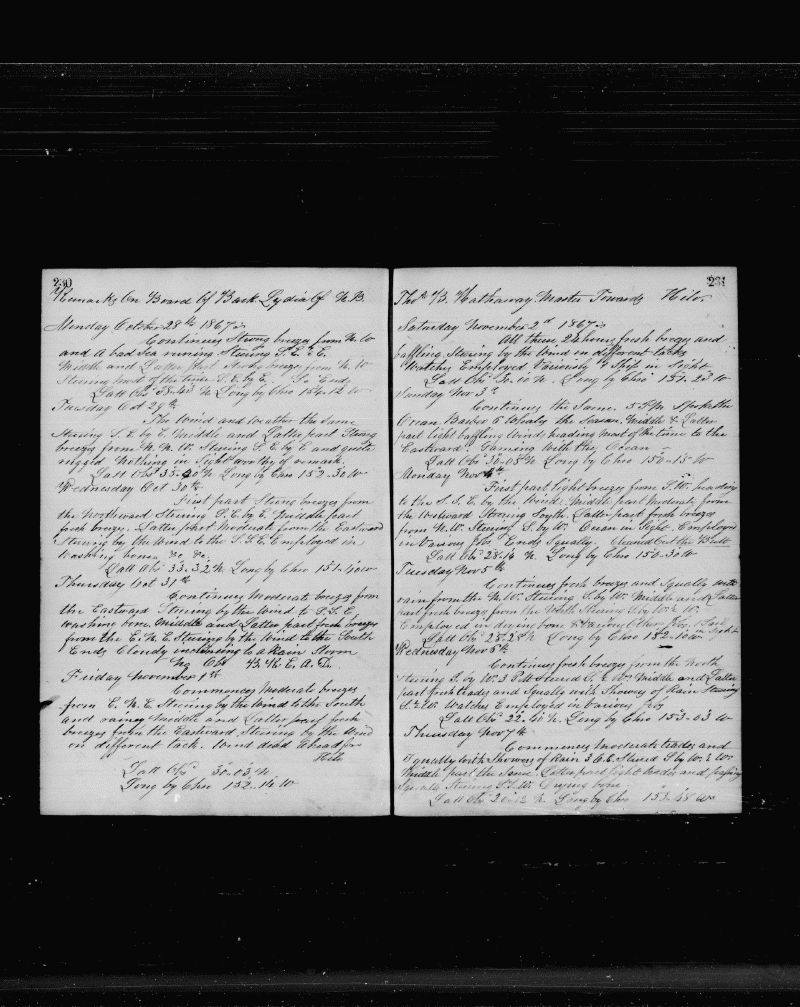 230
Remarks On Board Of Bark Lydia Of N.B.
Monday October 28th 1867
Continues Strong breezes from N.W
and a bad Sea runing Stearing S.E. & E.
Middle and Latter part Strong breezes from N.W
Stearing most of the time S.E. by E. So Ends
Latt Obs 38-43 N Long by Chro 154-12 W
Tuesday Oct 29th
The Wind and weather the Same
Stearing S.E. by E. Middle and Latter part Strong
breezes from N.N.W. Stearing S.E. by E and quite
ruged Nothing in Sight worthy of remark.
Latt Obs 35-20 N Long by Chro 152-30 W
Wednesday Oct 30th
First part Strong breezes from
the Northward Stearing S.E. by E. Middle part
fresh breezes. Latter part Moderate from the Eastward
Stearing by the Wind to the S.S.E. Employed in
Washing bone &c &c.
Latt Obs 33-32 N Long by Chro 151-40 W
Thursday Oct 31st
Continues Moderate breezes from
the Eastward Stearing by the Wind to S.S.E
Washing bone. Middle and Latter part fresh breezes
from the E.N.E Stearing by the Wind to the South
Ends Cloudy inclining to a Rain Storm
No Obs D.R. E. A. D.
Friday November 1st
Commences Moderate breezes
from E.N.E Stearing by the Wind to the South
and rainy Middle and Latter part fresh
breezes from the Eastward Stearing by the Wind
on different tack. Wind dead Ahead for
Hilo
Latt Obs 30-03 N
Long by Chro 152-14 W
231
Thos B. Hathaway Master Towards Hilo
Saturday November 2nd 1867
All these 24 hours fresh breezes and
baffling. Stearing by the Wind in different tacks
Watches Employed Variously 1 Ship in Sight
Latt Obs 30-10 N. Long by Chro 151-23 W
Sunday Nov 3rd
Continues the Same. 5 P.M Spoke the
Ocean. Barker 6 Whales the Season. Middle & Latter
part light baffling Wind, heading most of the time to the
Eastward. Gaming with the Ocean
Latt Obs 30-05 N Long by Chro 150-15 W
Monday Nov 4th
First part light breezes from S.W. heading
to the S.S.E. by the Wind. Middle part Moderate from
the Westward Stearing South. Latter part fresh breezes
from N.W. Stearing S. by W. Ocean in Sight. Employed
in Various Jobs Ends Squally.
Latt Obs 28-14 N. Long by Chro 150-30 W
Tuesday Nov 5th
Continues fresh breezes and Squally with
rain from the N.W. Stearing S. by W. Middle and Latter
part fresh breezes from the North Stearing S. by W. & W.
Employed in drying bone & Various Other Jobs. 1 Sail
in Sight
Latt Obs 25-28 N Long by Chro 152-10 W
Wednesday Nov 6th
Continues fresh breezes from the North
Stearing S. by W. 3 P.M Steared S. & W. Middle and Latter
part fresh trades and Squally with Showers of Rain Stearing
S. & W. Watches Employed in Various Jobs
Latt Obs 22-40 N. Long by Chro 153-03 W
Thursday Nov 7th
Commences Moderate trades and
Squally with Showers of Rain 3 P.M. Steard S by W. & W.
Middle part the Same. Latter part light trades and passing
Squalls Stearing S.S.W. Drying bone.
Latt Obs 20-12 N. Long by Chro 153-48 W